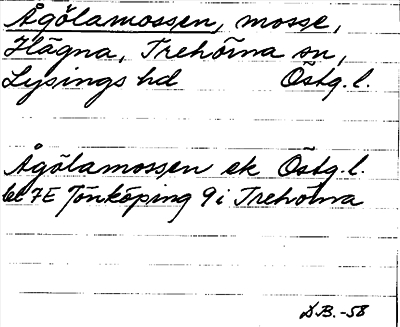 Ågölamossen, mosse,
Hägna, Trehörna sn,
Lysings hd Östg.l.
Ågölamossen ek Östg.l.
bl 7E Jönköping 9i Trehörna
D.B.-58